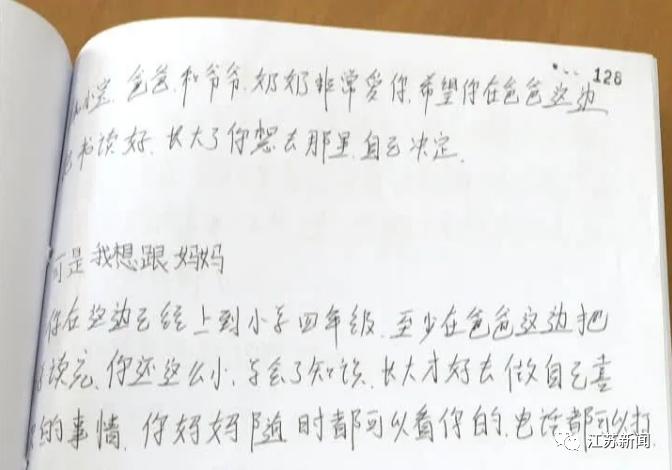 128
小宝.爸爸.和爷爷.奶奶非常爱你.希望你在爸爸这边
书读好.长大了你想去那里.自己决定.
可是我想跟妈妈
你在这边已经上到小学四年级.至少在爸爸这边把
读完.你还这么小.学会了知识.长大才好去做自己喜
的事情.你妈妈随时都可以看你的.电话都可以打
江苏新闻